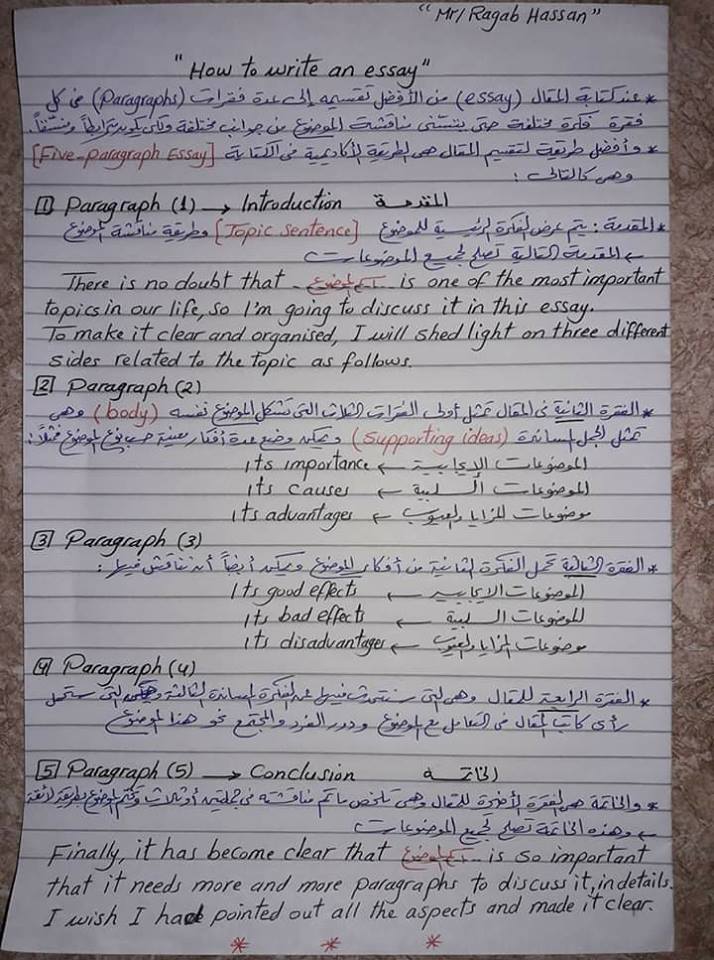 “Mr/ Ragab Hassan”
"How to write an essay"
* عند كتابة المقال (essay) من الأفضل تقسيمه إلى عدة فقرات (Paragraphs) فى كل
فقرة فكرة مختلفة حتى يتسنى مناقشة الموضوع من جوانب مختلفة ولكى يكون مترابطاً ومنسقاً.
* وأفضل طريقة لتقسيم المقال هى الطريقة الأكاديمية فى الكتابة [Five-paragraph Essay]
وهى كالتالى :
1 Paragraph (1) → Introduction المقدمة
* المقدمة : يتم عرض الفكرة الرئيسية للموضوع [Topic sentence] وطريقة مناقشة الموضوع
← المقدمة التالية تصلح لجميع الموضوعات
There is no doubt that - اسم الموضوع - is one of the most important
topics in our life, so I'm going to discuss it in this essay.
To make it clear and organised, I will shed light on three different
sides related to the topic as follows.
2 Paragraph (2)
* الفقرة الثانية فى المقال تمثل أولى الفقرات الثلاث التى تشكل الموضوع نفسه (body) وهى
تمثل الجمل المساندة (supporting ideas) ويمكن وضع عدة أفكار معينة حسب نوع الموضوع فمثلاً :
الموضوعات الإيجابية ← Its importance
الموضوعات السلبية ← Its causes
موضوعات المزايا والعيوب ← Its advantages
3 Paragraph (3)
* الفقرة الثالثة تحمل الفكرة الثانية من أفكار الموضوع ويمكن أيضاً أن نناقش فيها :
الموضوعات الايجابية ← Its good effects
للموضوعات السلبية ← Its bad effects
موضوعات المزايا والعيوب ← Its disadvantages
4 Paragraph (4)
* الفقرة الرابعة للمقال وهى التى سنتحدث فيها عن الفكرة المساندة الثالثة التى ستحمل
رأى كاتب المقال فى التعامل مع الموضوع ودور الفرد والمجتمع نحو هذا الموضوع
5 Paragraph (5) → Conclusion الخاتمة
* والخاتمة هى الفقرة الأخيرة للمقال وهى تلخص ما تم مناقشته فى جملتين أو ثلاث وتختم الموضوع بطريقة لائقة
← وهذه الخاتمة تصلح لجميع الموضوعات
Finally, it has become clear that اسم الموضوع is so important
that it needs more and more paragraphs to discuss it, in details.
I wish I had pointed out all the aspects and made it clear.
* * *